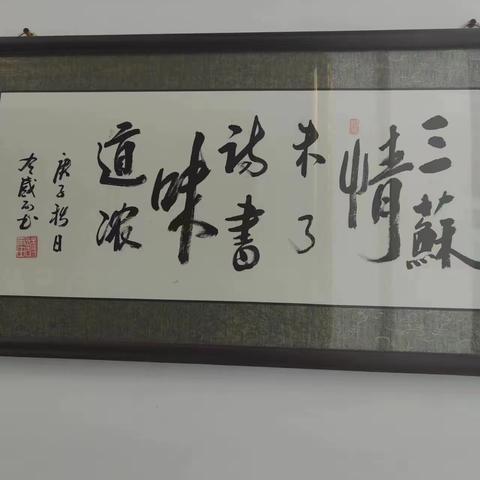 三蘇
情
未了
詩書
味
道濃
庚子秋日